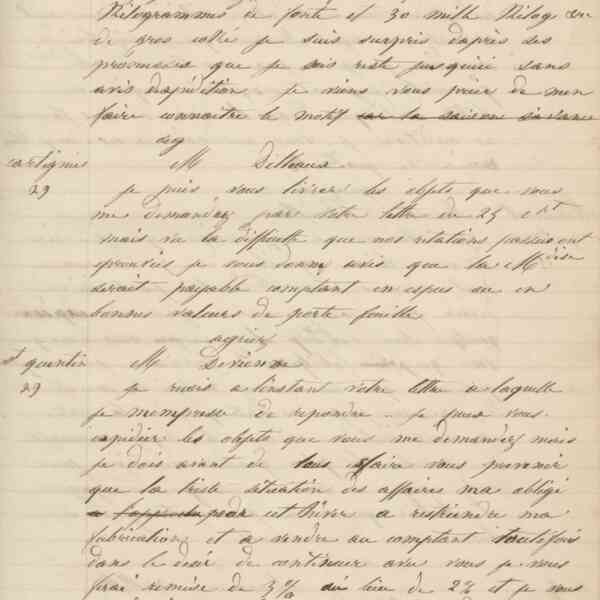 Kilogrammes de fonte et 30 mille Kilog
de gros cokes je suis surpris d'après ses
promesses que je sois resté jusqu'ici sans
avis d'expédition. je viens vous prier de m'en
faire connaître le motif car la saison s'avance
agr
cartignies M Delhaux
29 je puis vous livrer les objets que vous
me demandez par votre lettre du 25 ct
mais vu la difficulté que nos relations passées ont
éprouvées je vous donne avis que la Mdise
serait payable comptant en espèces ou en
bonnes valeurs de porte feuille
agréez
st quentin M Devienne
29 je reçois à l'instant votre lettre a laquelle
je m'empresse de repondre. je puis vous
expédier les objets que vous me demandez mais
je dois avant de faire vous prévenir
que la triste situation des affaires m'a obligé
pour cet hiver a restreindre ma
fabrication et a vendre au comptant toutefois
dans le désir de continuer avec vous je vous
ferai remise de 3% au lieu de 2% et je vous